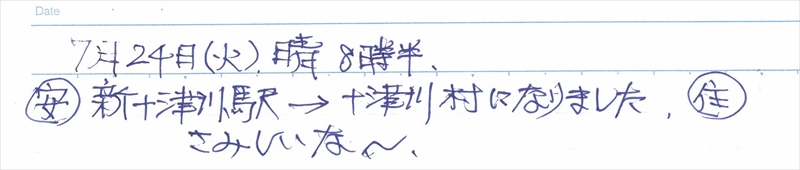 Date
7月24日(火)、晴 8時半、
安 新十津川駅→十津川村になりました、 住
さみしいな〜、